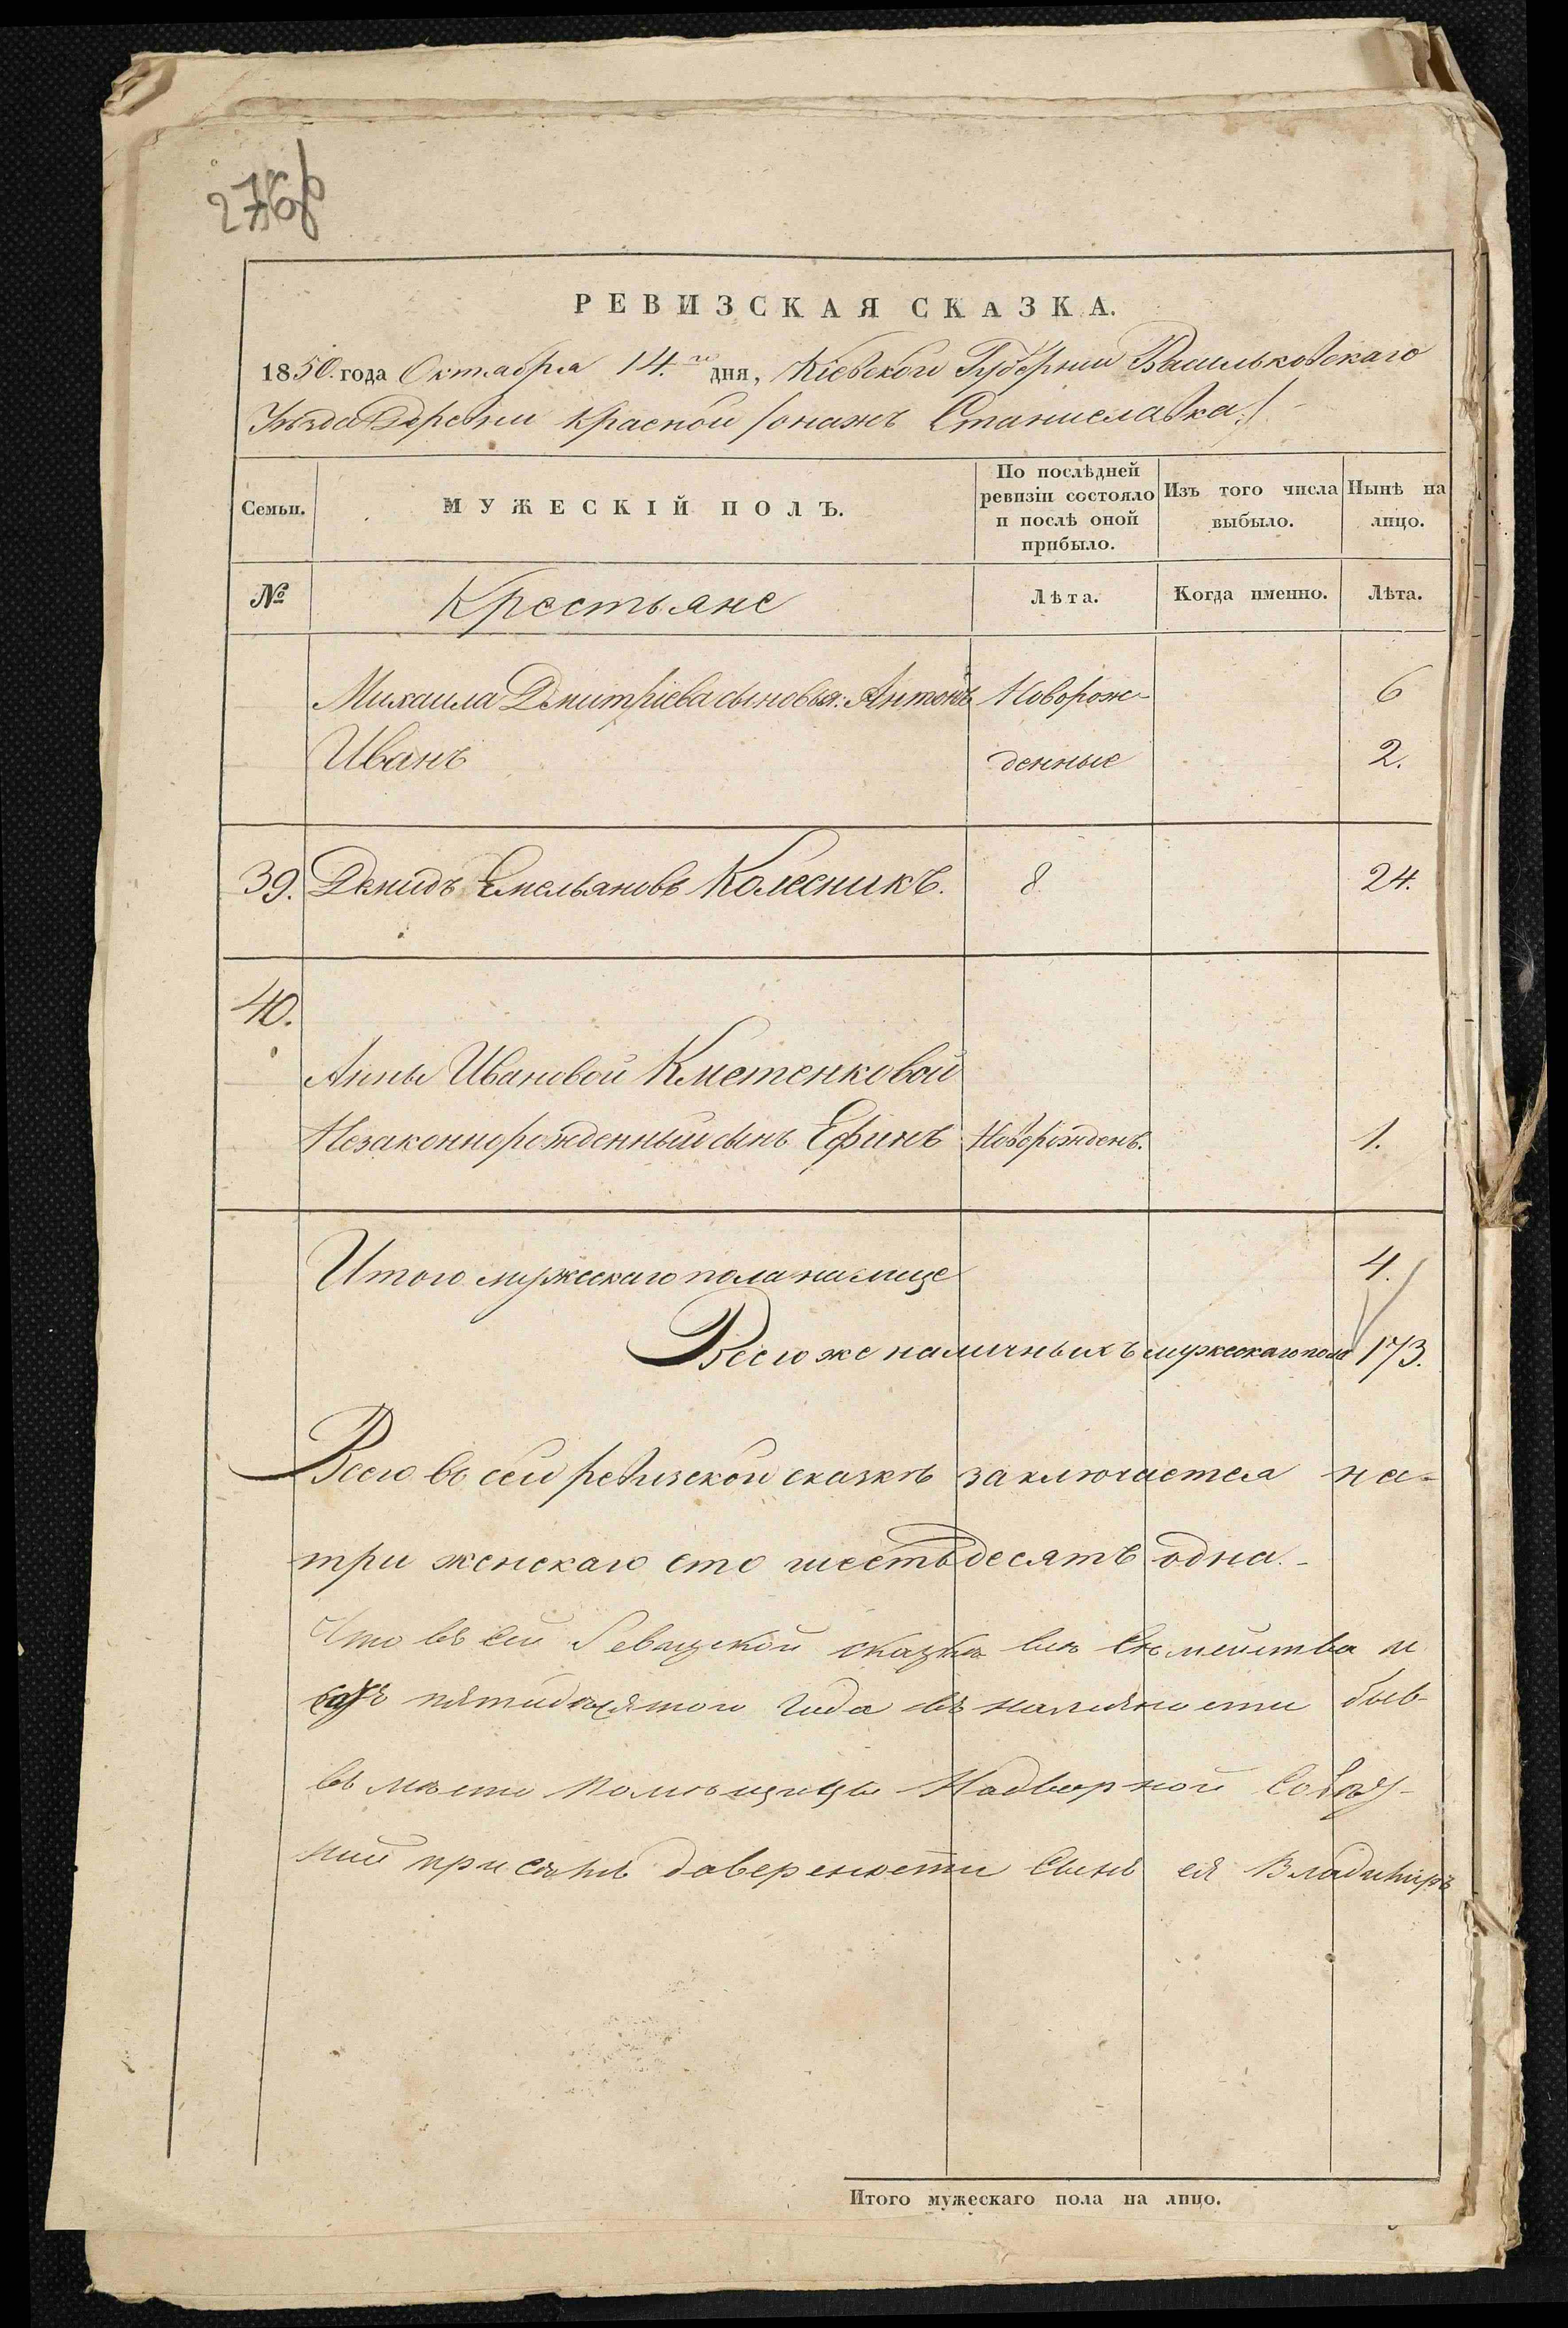 РЕВИЗСКАЯ СКАЗКА.
1850. года Октября 14.го дня, Кіевской Губерніи Васильковскаго
Уѣзда Деревни Красной /онажъ Станиславка./
Семьи.
МУЖЕСКІЙ ПОЛЪ.
По послѣдней ревизіи состояло и послѣ оной прибыло.
Изъ того числа выбыло.
Нынѣ на лицо.
№
Крестьяне
Лѣта.
Когда именно.
Лѣта.
Михаила Дмитріева сыновья: Антонъ Новорож- 6
Иванъ денные 2.
39. Демидъ Емельяновъ Колесникъ. 8 24.
40.
Анны Ивановой Кметенковой
Незаконнорожденный сынъ Ефимъ Новорожденъ. 1.
Итого мужескаго пола на лице 4.
Всего же наличныхъ мужескаго пола 173.
Всего въ сей ревизской сказкѣ заключается на-
три женскаго сто шестьдесятъ одна.-
Что въ сей Ревизской сказкѣ всѣ Сѣмейства и
пятидесятого Года въ наличности быв-
въ мѣсто Помѣщицы Надворной Совѣт-
ной при доверености Сынъ ея Владимиръ
Итого мужескаго пола на лицо.